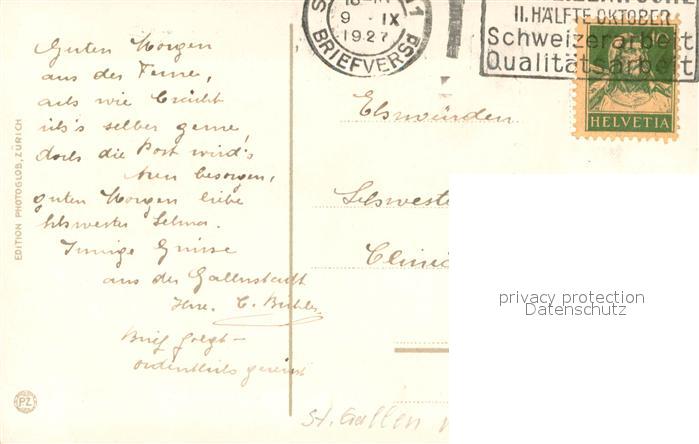 Guten Morgen
aus der Ferne,
ach wie brächt
ich's selber gerne,
doch die Post wird's
besorgen,
guten Morgen liebe
Schwester Selma.
Innige Grüsse
aus der Gallusstadt
Ihre C.
Brief folgt –
EDITION PHOTOGLOB, ZÜRICH
PZ
9 - IX
1927
BRIEFVERSD
II. HÄLFTE OKTOBER
Schweizerarbeit
Qualitätsarbeit
HELVETIA
Schweste
Clinic
privacy protection
Datenschutz
St. Gallen